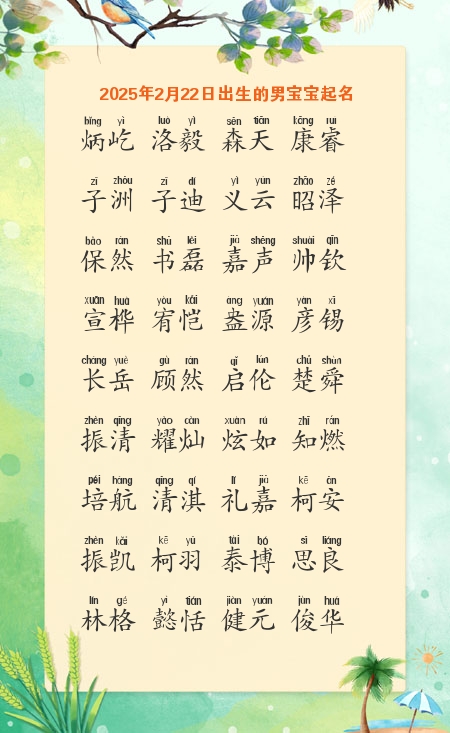 2025年2月22日出生的男宝宝起名
bǐng yì luò yì sēn tiān kāng ruì
炳屹 洛毅 森天 康睿
zǐ zhōu zǐ dí yì yún zhāo zé
子洲 子迪 义云 昭泽
bǎo rán shū lěi jiā shēng shuài qīn
保然 书磊 嘉声 帅钦
xuān huà yòu kǎi àng yuán yàn xī
宣桦 宥恺 盎源 彦锡
cháng yuè gù rán qǐ lún chǔ shùn
长岳 顾然 启伦 楚舜
zhèn qīng yào càn xuàn rú zhī rán
振清 耀灿 炫如 知燃
péi háng qīng qí lǐ jiā kē ān
培航 清淇 礼嘉 柯安
zhèn kǎi kē yǔ tài bó sī liáng
振凯 柯羽 泰博 思良
lín gé yì tián jiàn yuán jùn huá
林格 懿恬 健元 俊华